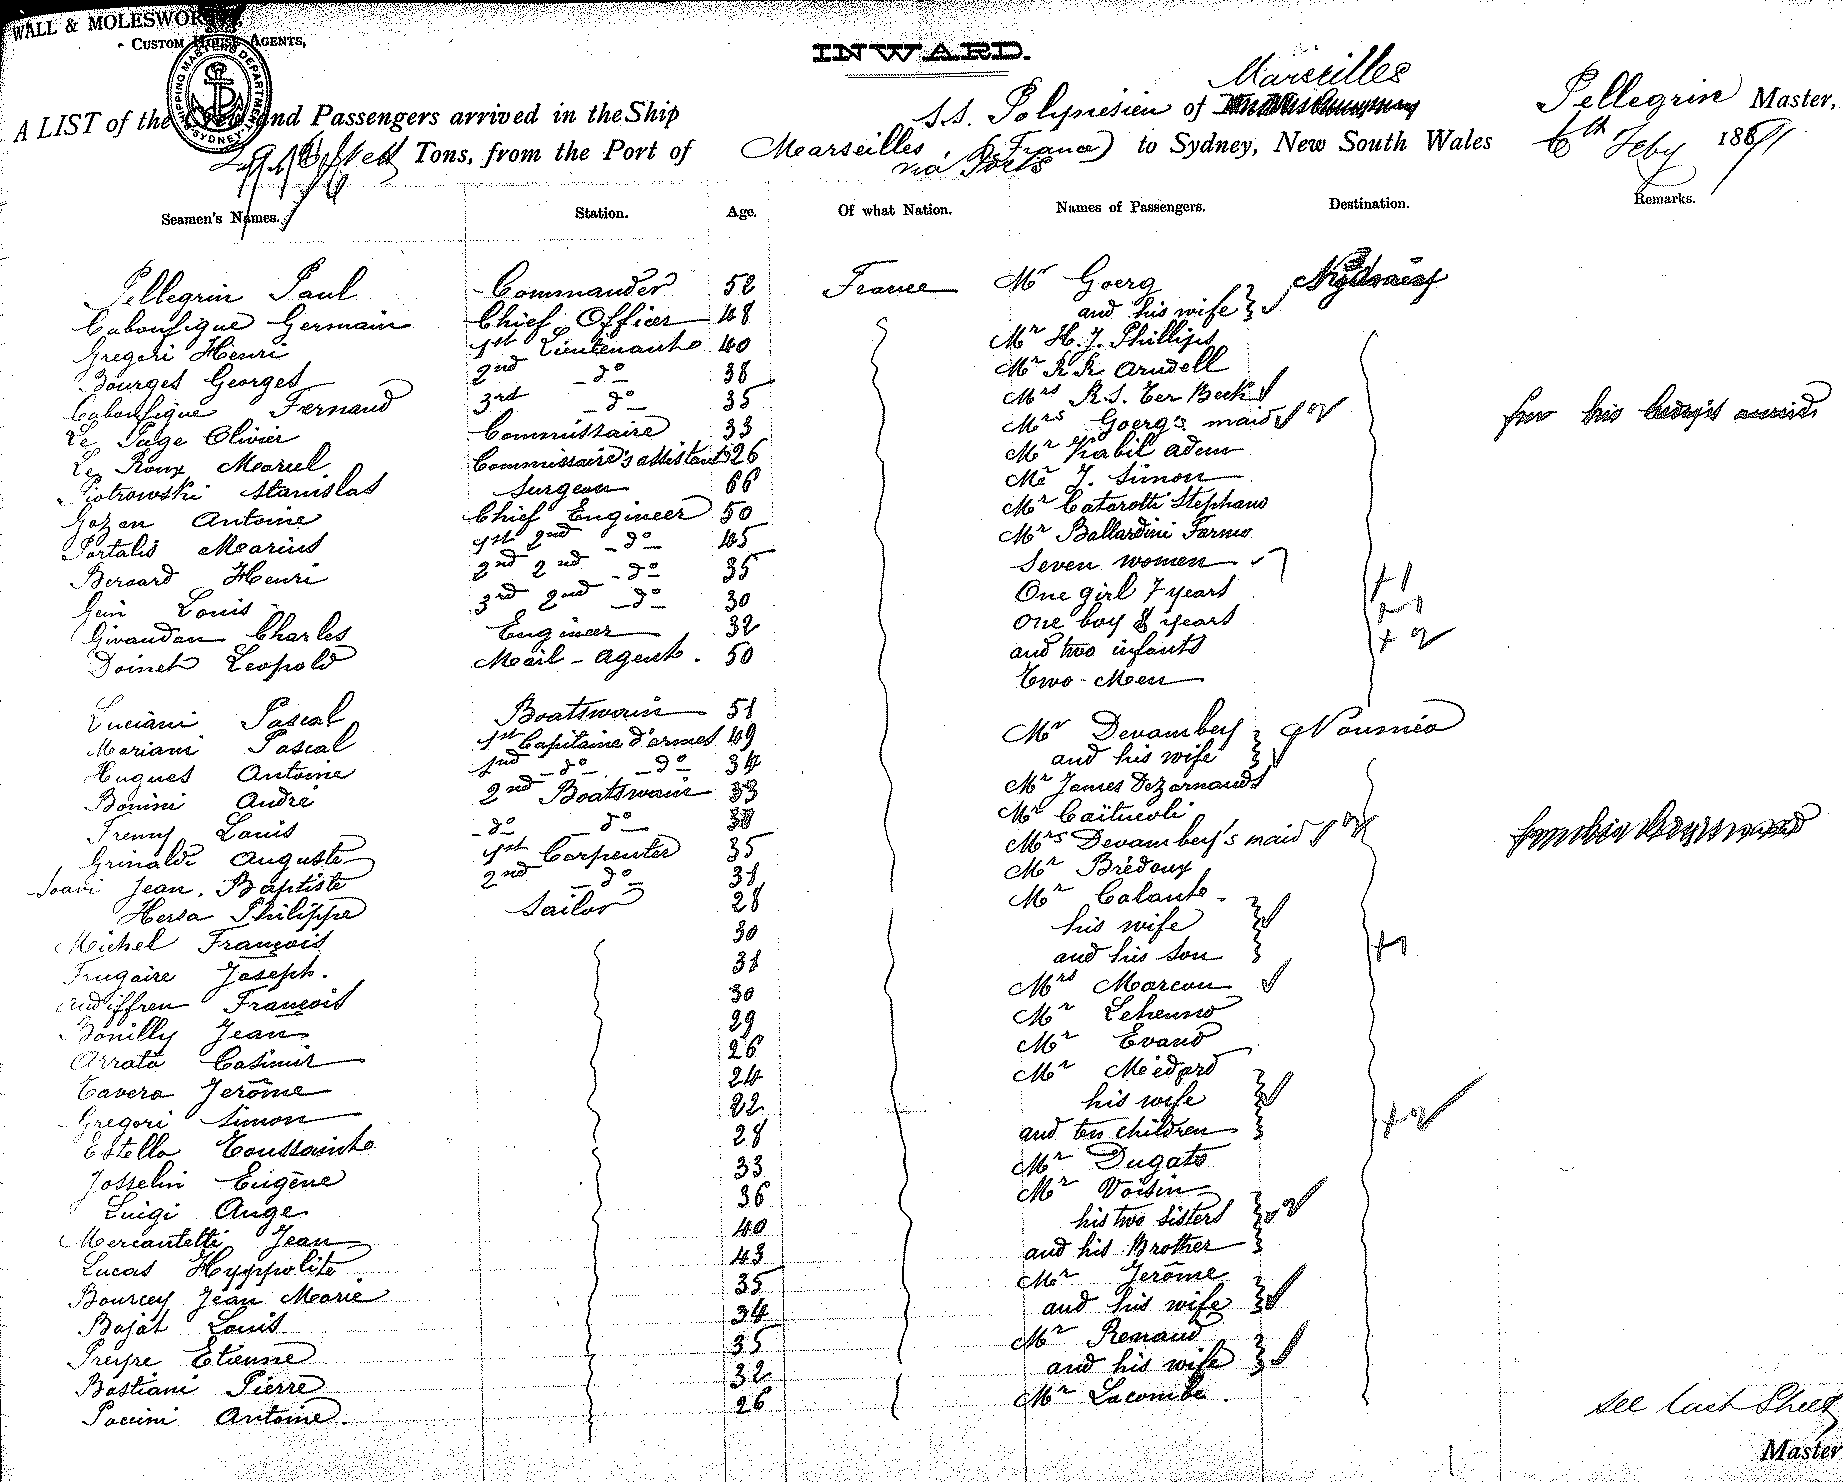 WALL & MOLESWORTH,
CUSTOM HOUSE AGENTS,
SHIPPING MASTERS DEPARTMENT
SYDNEY
INWARD.
Marseilles
A LIST of the Crew and Passengers arrived in the Ship S.S. Polynesien of Pellegrin Master,
Tons, from the Port of Marseilles (France) to Sydney, New South Wales 6th Feby 1891
via Ports
Seamen's Names. Station. Age. Of what Nation. Names of Passengers. Destination. Remarks.
Pellegrin Paul Commander 52 France Mr Goerg Sydney
Caboufigue Germain Chief Officer 48 and his wife
Gregori Henri 1st Lieutenant 40 Mr H. J. Phillips
Bourges Georges 2nd do 38 Mr R R Arudell
Caboufigue Fernand 3rd do 35 Mrs R. S. Ter Beek
Le Page Olivier Commissaire 33 Mrs Goerg's maid
Le Roux Marcel Commissaire's assistant 26 Mr Kabil Adem
Piotrowski Stanislas Surgeon 66 Mr J. Simon
Gozan Antoine Chief Engineer 50 Mr Catarotti Stephano
Portalis Marius 1st 2nd do 45 Mr Ballardini Formo
Berard Henri 2nd 2nd do 35 Seven women
Gein Louis 3rd 2nd do 30 One girl 7 years +1
Givaudan Charles Engineer 32 One boy 8 years +1
Doinet Leopold Mail-agent. 50 and two infants +2
Two-Men
Luciani Pascal Boatswain 51 Mr Devambey Noumea
Mariani Pascal 1st Capitaine d'armes 49 and his wife
Hugues Antoine 2nd do do 34 Mr James Dezarnaulds
Bonini André 2nd Boatswain 33 Mr Caïtucoli
Fremy Louis do do 38 Mrs Devambey's maid
Grinaldi Auguste 1st Carpenter 35 Mr Brédoux
Soavi Jean, Baptiste 2nd do 31 Mr Calante
Hersa Philippe Sailor 28 his wife
Michel François 30 and his son +1
Frugaire Joseph. 31 Mrs Marcou
Audiffren François 30 Mr Lehenno
Bonilly Jean 29 Mr Evand
Arrata Casimir 26 Mr Médard
Cavera Jerôme 24 his wife
Gregori Simon 22 and two children +2
Estella Toussainte 28 Mr Dugats
Josselin Eugène 33 Mr Voisin
Luigi Ange 36 his two sisters
Mercantelli Jean 40 and his Brother
Lucas Hyppolite 43 Mr Jerôme
Bourcey Jean Marie 35 and his wife
Bajat Louis 34 Mr Renaud
Preyre Etienne 35 and his wife
Bastiani Pierre 32 Mr Lacombe.
Paccini Antoine. 26
see last Sheet
Master